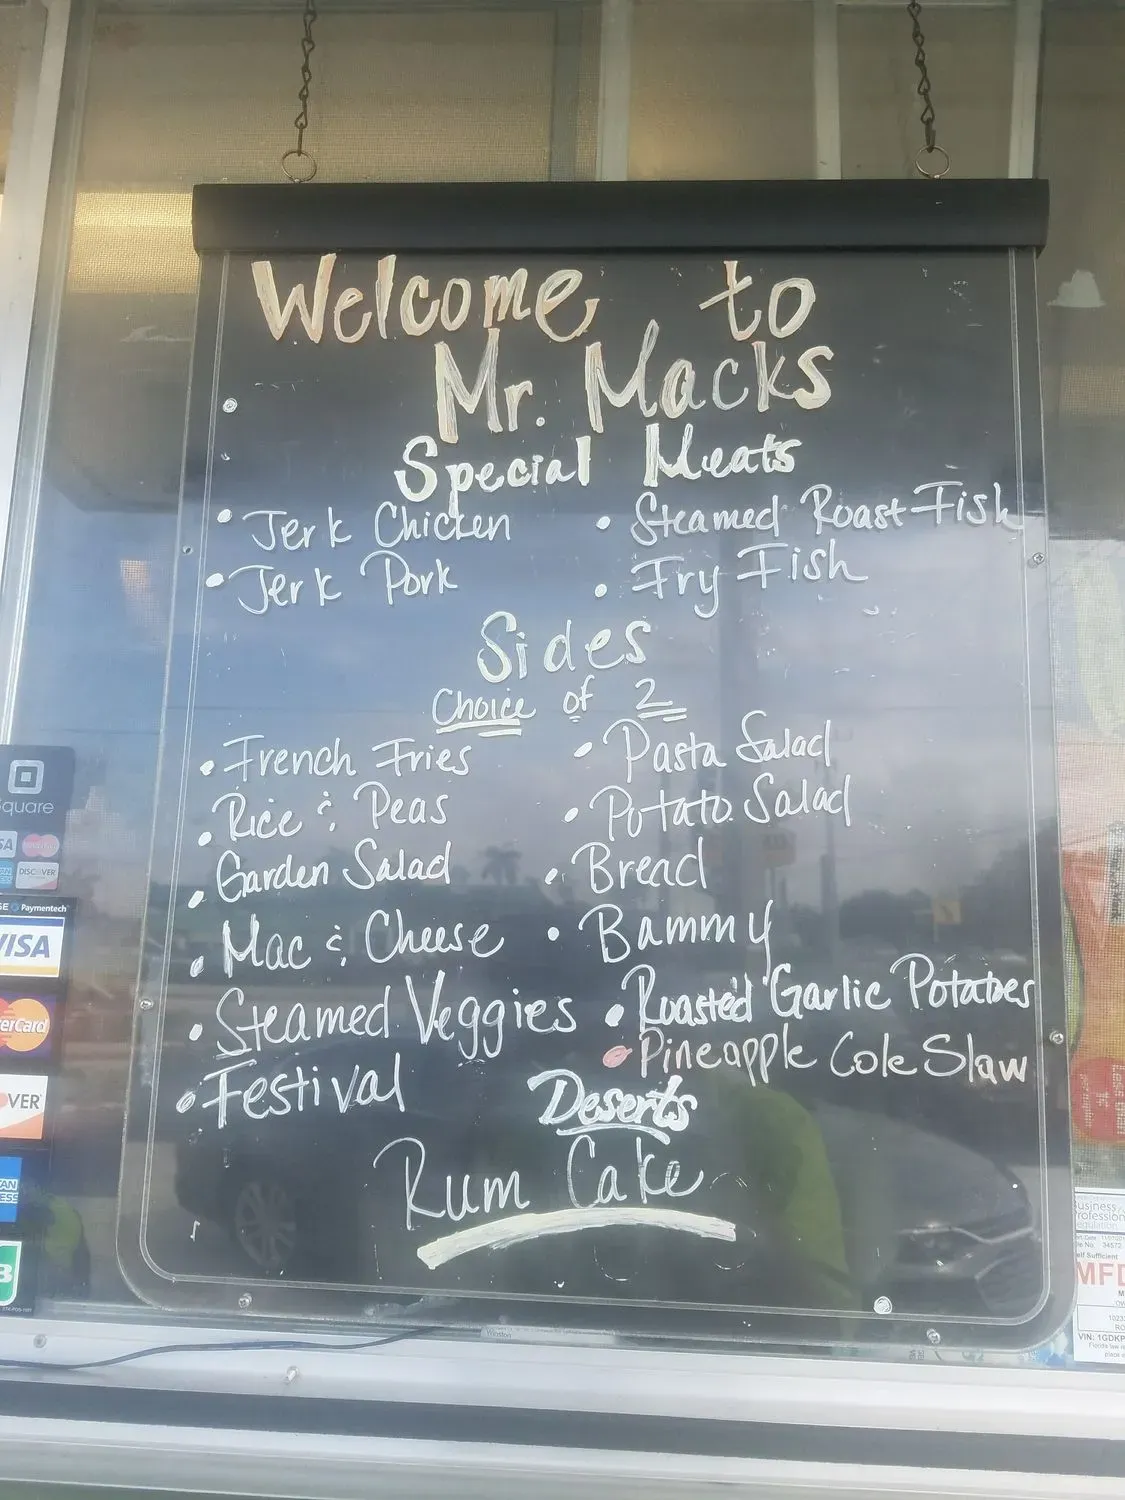 Welcome to
Mr. Macks
Special Meats
• Jerk Chicken
• Jerk Pork
• Steamed Roast Fish
• Fry Fish
Sides
Choice of 2
• French Fries
• Rice & Peas
• Garden Salad
• Mac & Cheese
• Steamed Veggies
• Festival
• Pasta Salad
• Potato Salad
• Bread
• Bammy
• Roasted Garlic Potatoes
• Pineapple Cole Slaw
Deserts
Rum Cake
quare
DISCOVER
Paymentech
VISA
erCard
OVER
Winston
usiness
rofession
egulation
34572
elf Sufficient
MFD
VIN: 1GDKP